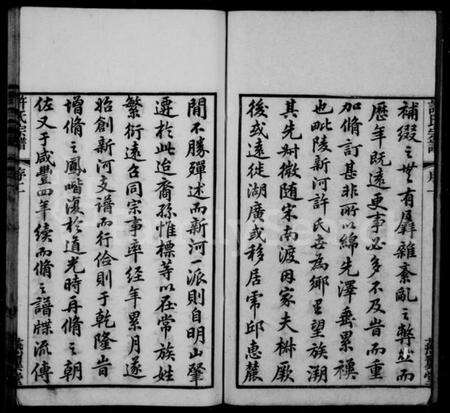 補綴之世有舛雜紊亂之弊坐而
歷年既遠更事必多不及昔而重
加脩訂甚非所以綿先澤垂累禩
也毗陵新河許氏吾為鄉里望族溯
其先對微隨宋南渡因家夫椒厥
後或遠徙湖廣或移居常邱惠麓
間不勝殫述而新河一派則自明山肇
遷於此迨裔孫惟標等以在常族姓
繁衍遠召同宗事率經年累月遂
昉創新河支譜而行佺則于乾隆時
增脩之鳳喈復於道光時再脩之朝
佐又于咸豐四年續而脩之譜牒流傳
許氏宗譜 序二